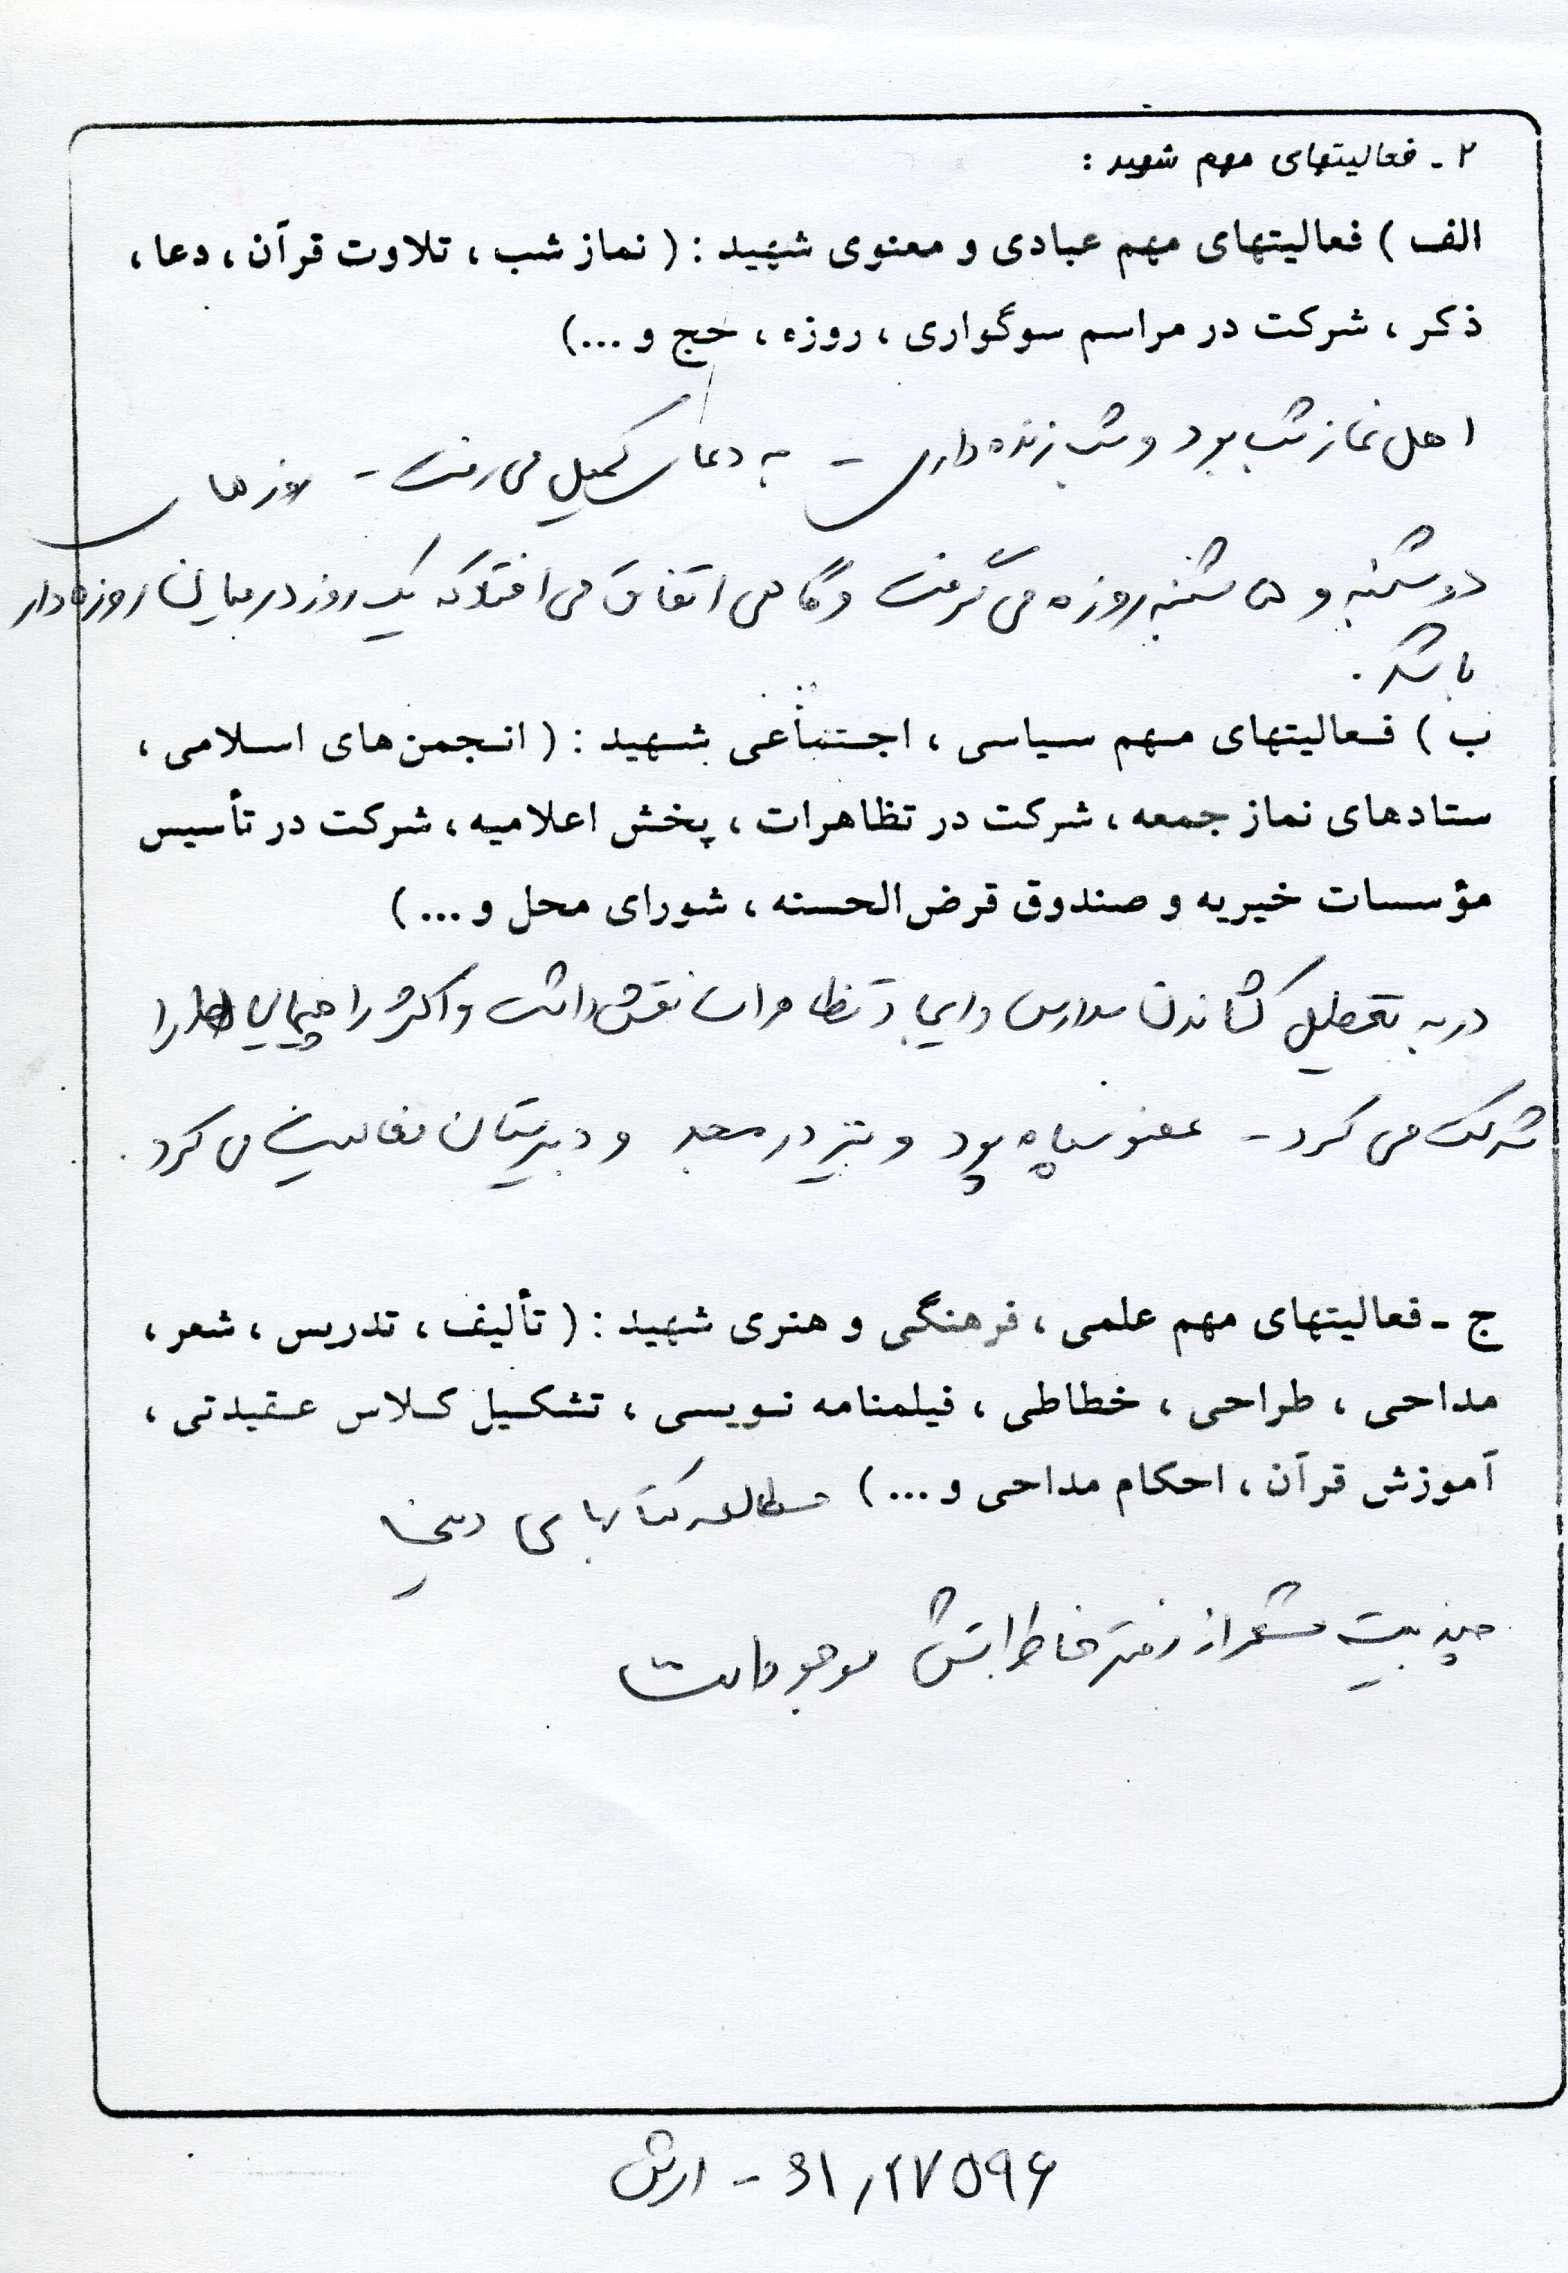 ۲ - فعالیتهای مهم شهید :
الف ) فعالیتهای مهم عبادی و معنوی شهید : ( نماز شب ، تلاوت قرآن ، دعا ،
ذکر ، شرکت در مراسم سوگواری ، روزه ، حج و ... )
اهل نماز شب بود و شب زنده داری - به دعای کمیل می رفت - روزهای
دوشنبه و ۵ شنبه روزه می گرفت و گاهی اتفاق می افتد که یک روز در میان روزه دار
باشد .
ب ) فعالیتهای مهم سیاسی ، اجتماعی شهید : ( انجمن‌های اسلامی ،
ستادهای نماز جمعه ، شرکت در تظاهرات ، پخش اعلامیه ، شرکت در تأسیس
مؤسسات خیریه و صندوق قرض‌الحسنه ، شورای محل و ... )
در به تعطیلی کشاندن مدارس و ایجاد تظاهرات نقش داشت و اکثر راهپیمایی ها را
شرکت می کرد - عضو سپاه بود و نیز در مسجد و دبیرستان فعالیت می کرد .
ج - فعالیتهای مهم علمی ، فرهنگی و هنری شهید : ( تألیف ، تدریس ، شعر ،
مداحی ، طراحی ، خطاطی ، فیلمنامه نویسی ، تشکیل کلاس عقیدتی ،
آموزش قرآن ، احکام مداحی و ... ) مطالعه کتابهای دینی
چند بیت شعر از دفتر خاطراتش موجود است
۳۱٫۲۷۵۹۶ - ارش